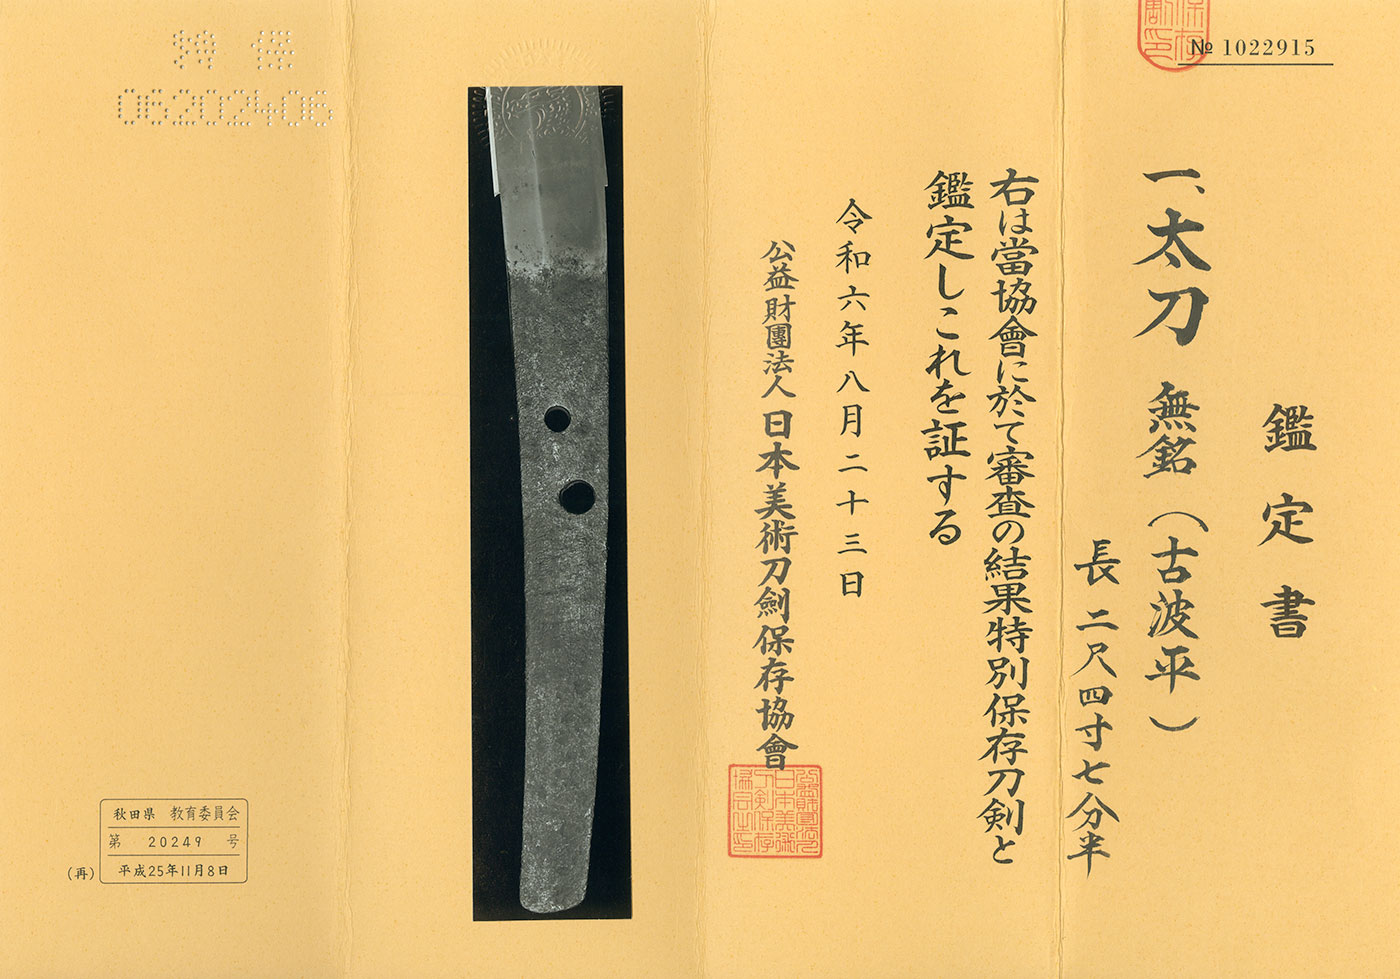 № 1022915
鑑定書
一、太刀 無銘(古波平)
長 二尺四寸七分半
右は當協會に於て審査の結果特別保存刀剣と
鑑定しこれを証する
令和六年八月二十三日
公益財團法人 日本美術刀劍保存協會
特保
06202406
秋田県 教育委員会
第 20249 号
(再) 平成25年11月8日